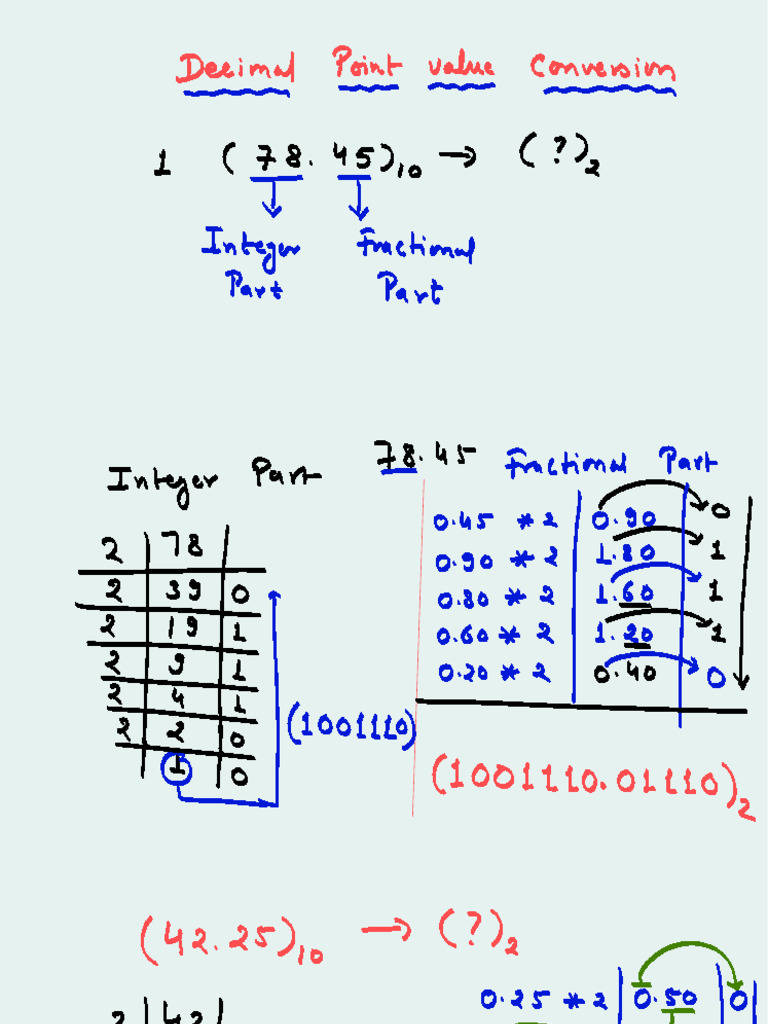 Decimal Point value Conversion
1 (78.45)₁₀ → (?)₂
Integer Part
Fractional Part
78.45
Integer Part
2 | 78 |
2 | 39 | 0
2 | 19 | 1
2 | 9 | 1
2 | 4 | 1
2 | 2 | 0
1 | 0
(1001110)
Fractional Part
0.45 * 2 | 0.90 | 0
0.90 * 2 | 1.80 | 1
0.80 * 2 | 1.60 | 1
0.60 * 2 | 1.20 | 1
0.20 * 2 | 0.40 | 0
(1001110.01110)₂
(42.25)₁₀ → (?)₂
2 | 42 |
0.25 * 2 | 0.50 | 0 |